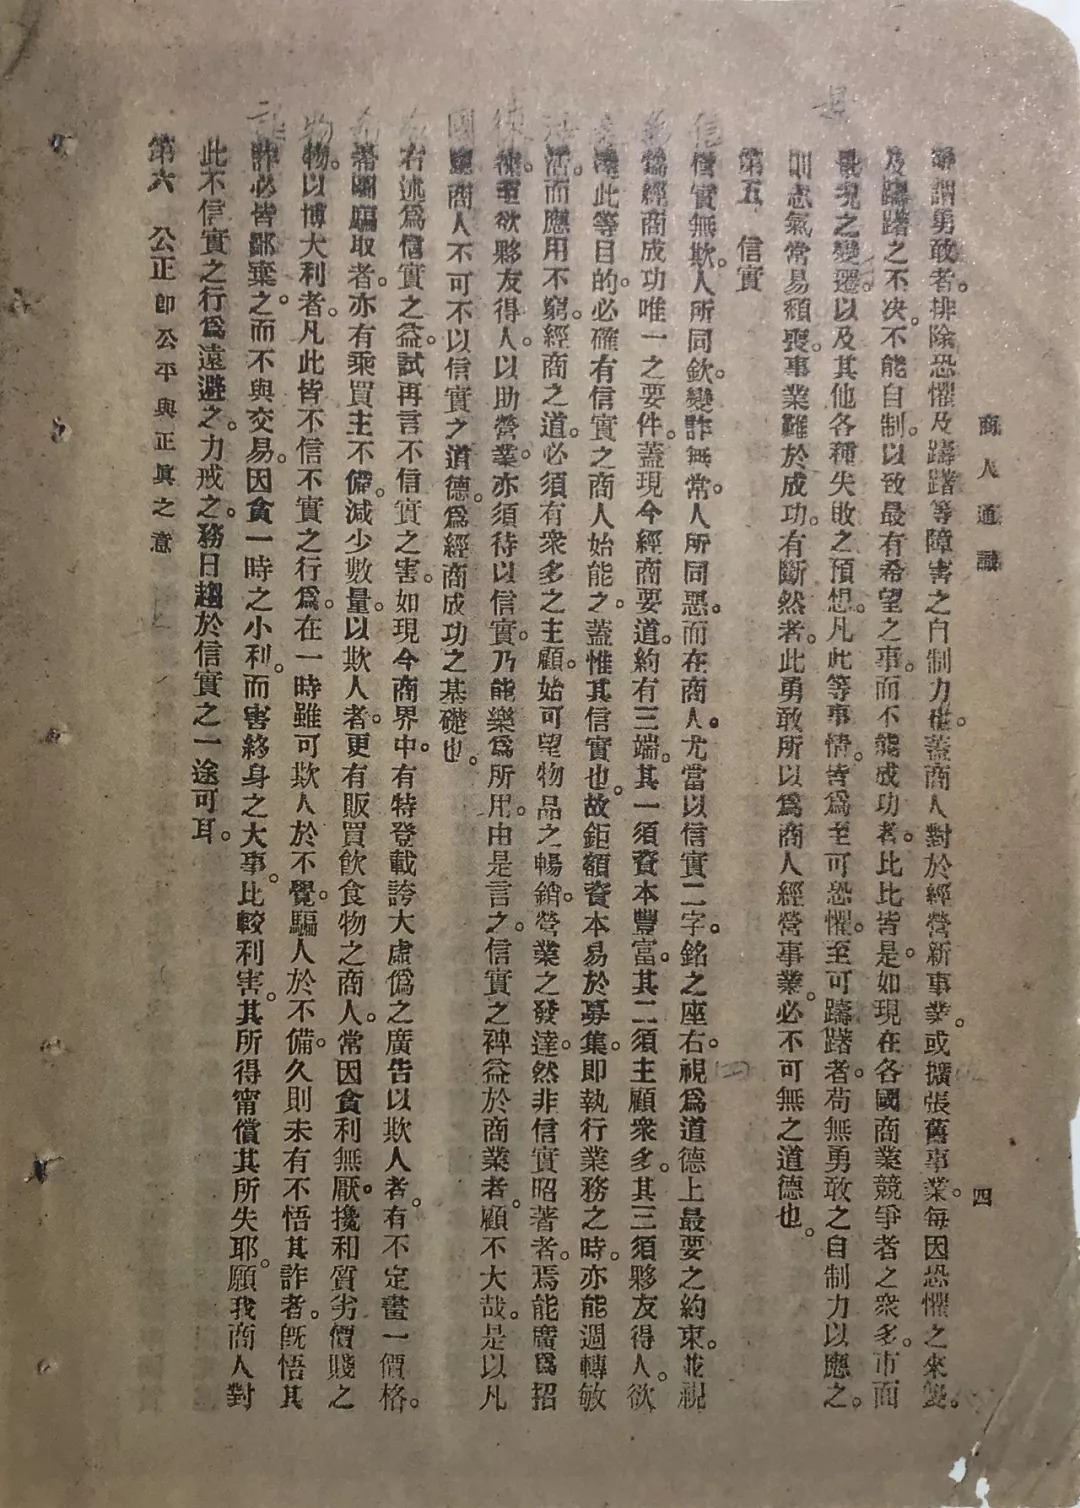 商人通識
四
所謂勇敢者。排除恐懼及躊躇等障害之自制力也。蓋商人對於經營新事業。或擴張舊事業。每因恐懼之來襲。
及躊躇之不决。不能自制。以致最有希望之事。而不能成功者。比比皆是。如現在各國商業競爭者之衆多。市面
現之變遷。以及其他各種失敗之預想。凡此等事情。皆爲至可恐懼。至可躊躇者。苟無勇敢之自制力以應之。
則志氣常易頹喪。事業難於成功。有斷然者。此勇敢所以爲商人經營事業。必不可無之道德也。
第五 信實
信實無欺。人所同欽。變詐無常。人所同惡。而在商人。尤當以信實二字。銘之座右。視爲道德上最要之約束。並視
爲經商成功唯一之要件。蓋現今經商要道。約有三端。其一須資本豐富。其二須主顧衆多。其三須夥友得人。欲
達此等目的。必確有信實之商人始能之。蓋惟其信實也。故鉅額資本易於募集。即執行業務之時。亦能週轉敏
活。而應用不窮。經商之道。必須有衆多之主顧。始可望物品之暢銷。營業之發達。然非信實昭著者。焉能廣爲招
徠。至欲夥友得人。以助營業。亦須待以信實。乃能樂爲所用。由是言之。信實之裨益於商業者。顧不大哉。是以凡
爲商人不可不以信實之道德。爲經商成功之基礎也。
右述爲信實之益。試再言不信實之害。如現今商界中。有特登載誇大虛僞之廣告以欺人者。有不定畫一價格。
希圖騙取者。亦有乘買主不備。減少數量。以欺人者。更有販買飲食物之商人。常因貪利無厭。攙和質劣價賤之
物。以博大利者。凡此皆不信不實之行爲。在一時雖可欺人於不覺。騙人於不備。久則未有不悟其詐者。旣悟其
詐。必皆鄙棄之。而不與交易。因貪一時之小利。而害終身之大事。比較利害。其所得甯償其所失耶。願我商人對
此不信實之行爲遠避之。力戒之。務日趨於信實之一途可耳。
第六 公正即公平與正眞之意